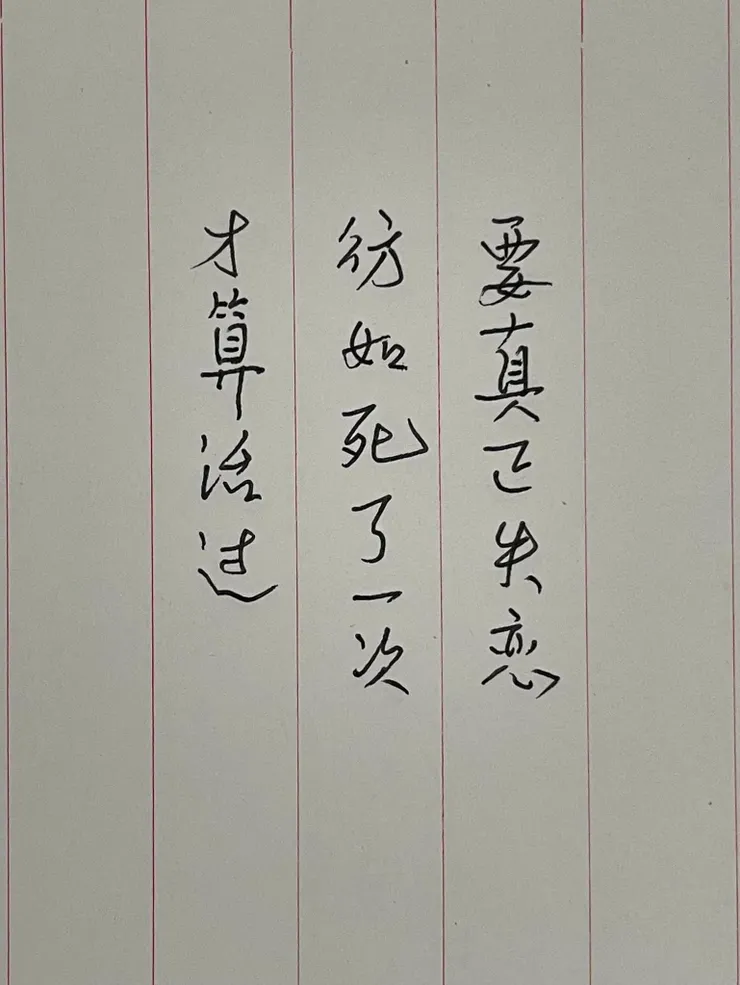 要真正失恋
彷如死了一次
才算活过